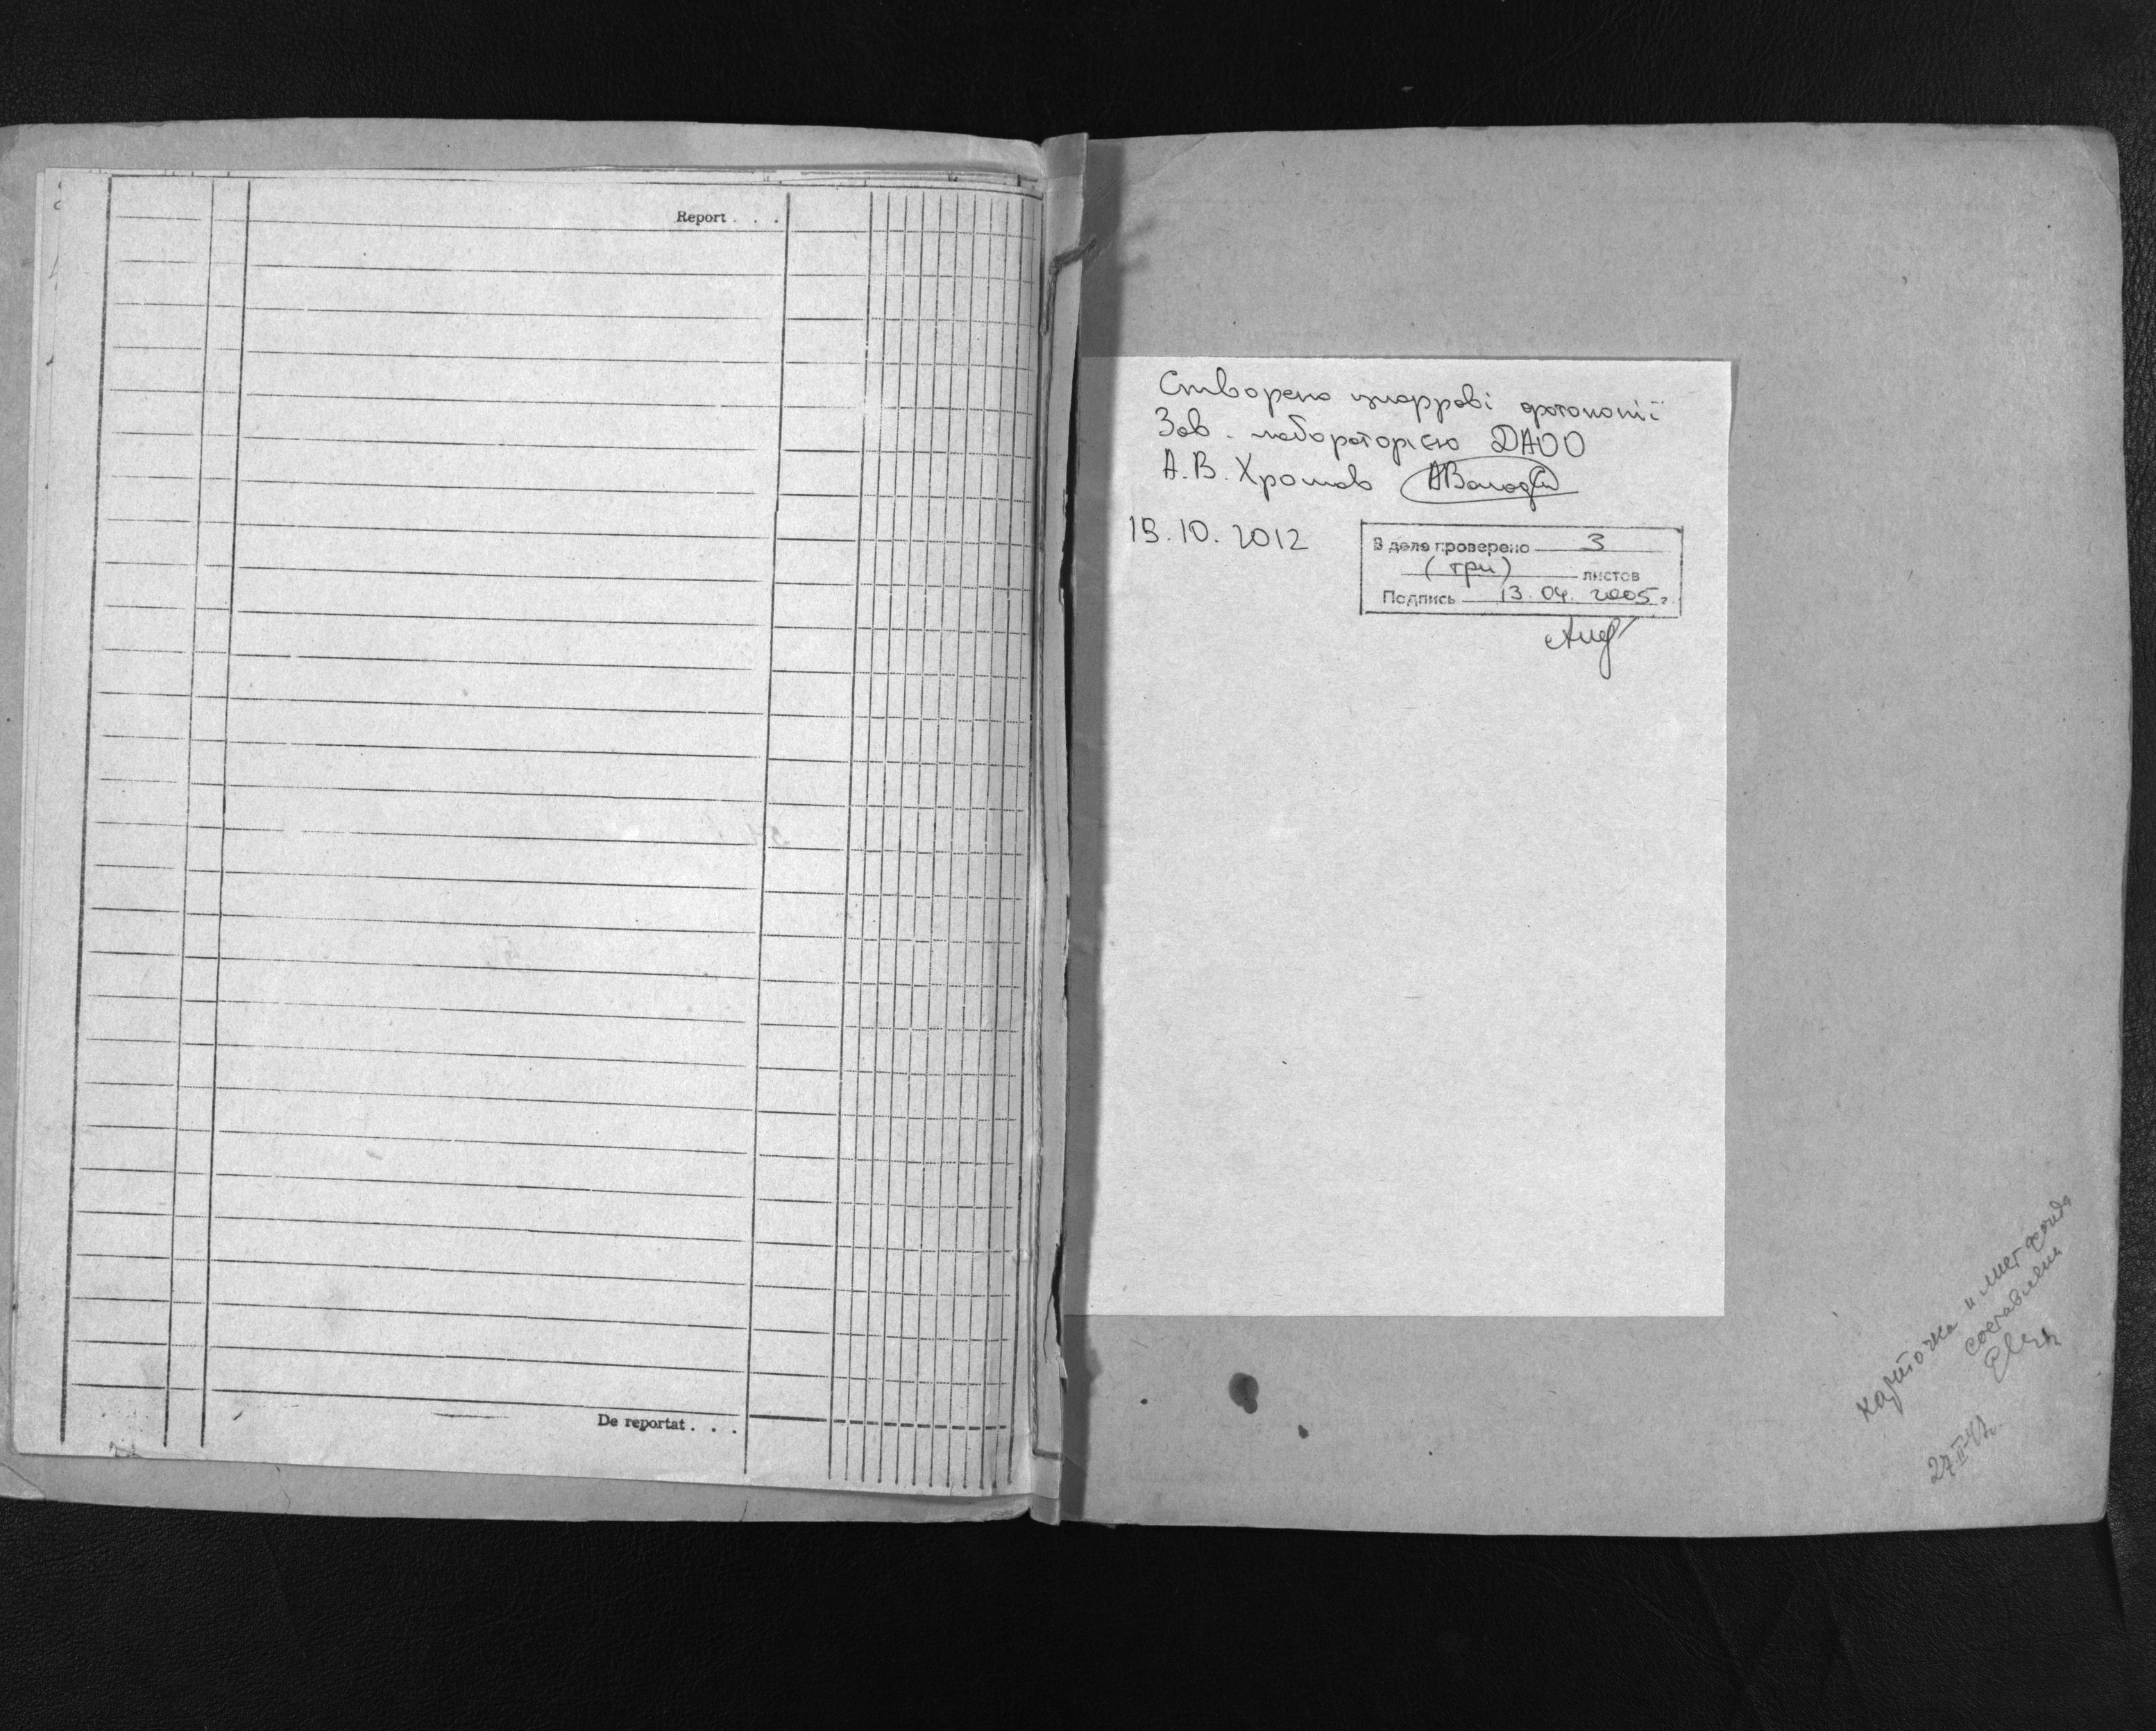 Report . . .
De reportat . . .
Створено цифрові фотокопії
Зав. лабораторією ДАОО
А.В. Хромов
15.10.2012
В деле проверено 3
(три) листов
Подпись 13.04.2005 г.
Карточка и лист фонда
составлены